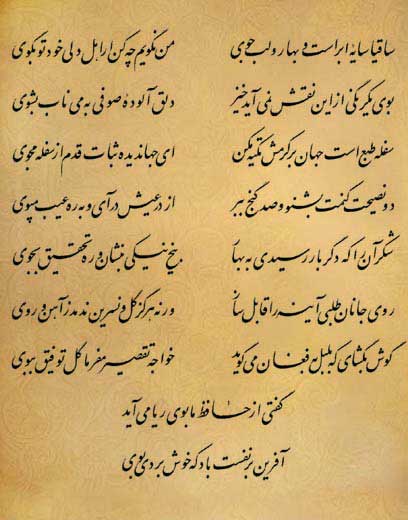 ساقیا سایهٔ ابر است و بهار و لب جوی من نگویم چه کن ار اهل دلی خود تو بگوی
بوی یکرنگی از این نقش نمی آید خیز دلق آلودهٔ صوفی به می ناب بشوی
سفله طبع است جهان بر کرمش تکیه مکن ای جهاندیده ثبات قدم از سفله مجوی
دو نصیحت کنمت بشنو و صد گنج ببر از در عیش درآی و به ره عیب مپوی
شکر آن را که دگر بار رسیدی به بهار بیخ نیکی بنشان و ره تحقیق بجوی
روی جانان طلبی آینه را قابل ساز ورنه هرگز گل و نسرین ندمد ز آهن و روی
گوش بگشای که بلبل به فغان می گوید خواجه تقصیر مفرما گل توفیق ببوی
گفتی از حافظ ما بوی ریا می آید
آفرین بر نفست باد که خوش بردی بوی